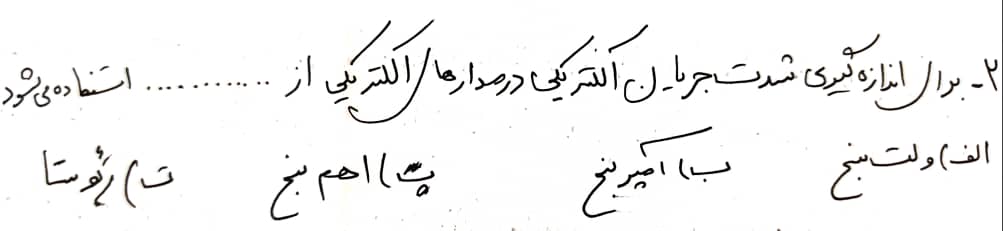 ۲- برای اندازه گیری شدت جریان الکتریکی در مدارهای الکتریکی از ........... استفاده می شود
الف) ولت سنج ب) آمپر سنج پ) اهم سنج ت) رئوستا